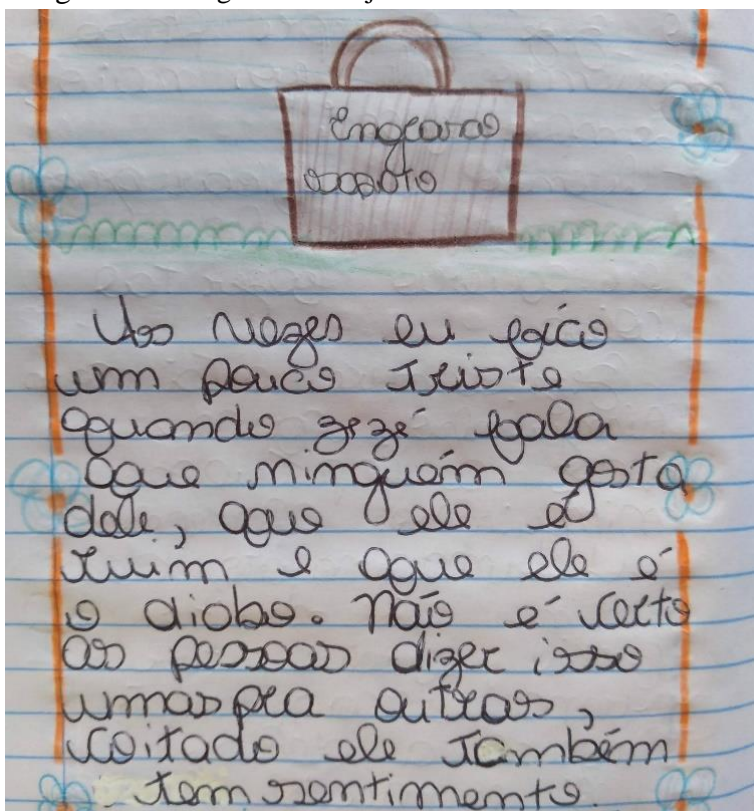 sapato
As vezes eu fico
um pouco triste
quando zezé fala
que ninguém gosta
dele, que ele é
ruim e que ele é
o diabo. Não é certo
as pessoas dizer isso
umas pra outras,
coitado ele também
tem sentimento